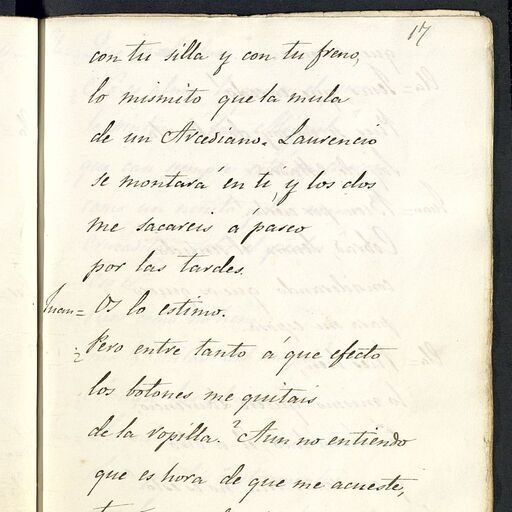 17
con tu silla y con tu freno,
lo mismito que la mula
de un Arcediano. Laurencio
se montará en ti, y los dos
me sacareis á paseo
por las tardes.
Juan= Os lo estimo.
¿Pero entre tanto á que efecto
los botones me quitais
de la ropilla? Aun no entiendo
que es hora de que me acueste,